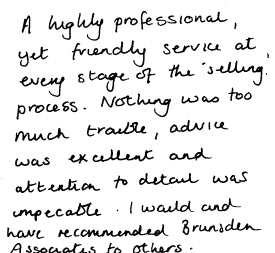 A highly professional,
yet friendly service at
every stage of the selling
process. Nothing was too
much trouble, advice
was excellent and
attention to detail was
impecable. I would and
have recommended Brunsden
Associates to others.